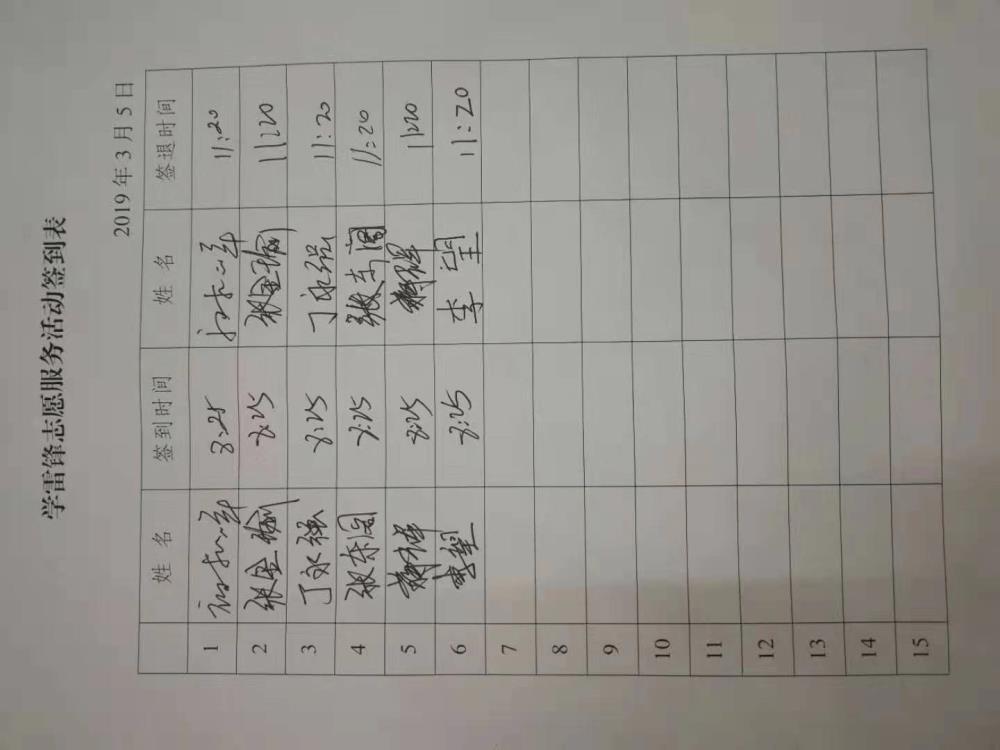 学雷锋志愿服务活动签到表
2019年3月5日
姓 名 签到时间 姓 名 签退时间
1 8:25 11:20
2 张金瑜 8:25 张金瑜 11:20
3 丁永强 8:25 丁永强 11:20
4 张东阁 8:25 张东阁 11:20
5 8:25 11:20
6 李望 8:25 李望 11:20
7
8
9
10
11
12
13
14
15